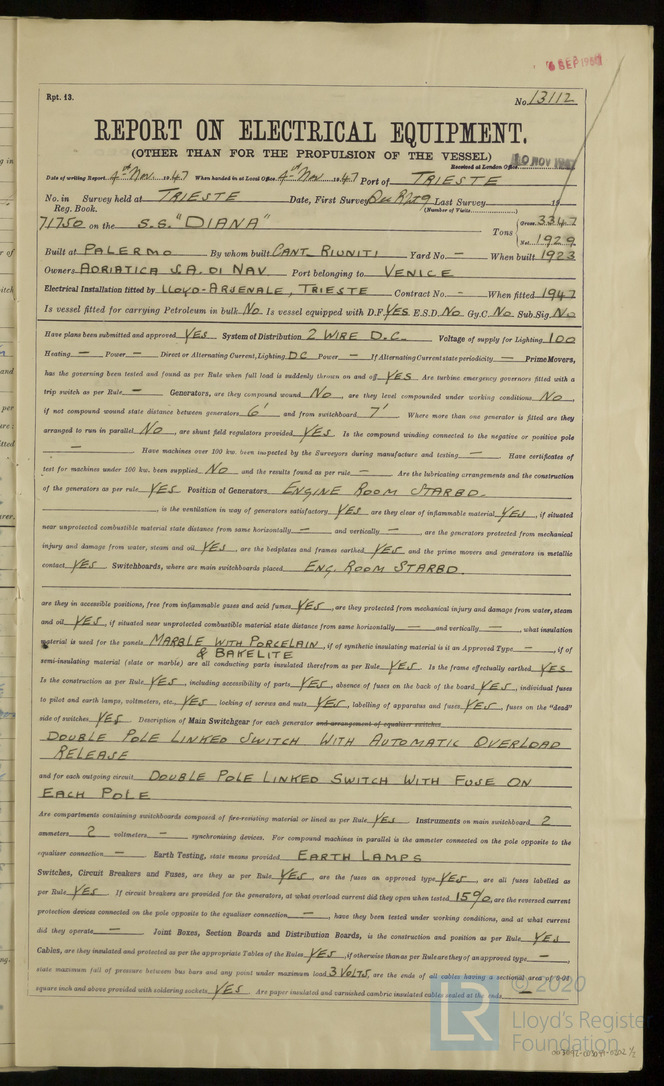 Rpt. 13.
No. 13112
REPORT ON ELECTRICAL EQUIPMENT.
(OTHER THAN FOR THE PROPULSION OF THE VESSEL)
Received at London Office 10 NOV 1947
Date of writing Report 4th Nov. 1947 When handed in at Local Office 4th Nov. 1947 Port of TRIESTE
No. in Survey held at TRIESTE Date, First Survey Last Survey 19
Reg. Book. (Number of Visits)
71750 on the S.S. "DIANA" Tons Gross 3347 Net 1929
Built at PALERMO By whom built CANT. RIUNITI Yard No. — When built 1923
Owners ADRIATICA S.A. DI NAV Port belonging to VENICE
Electrical Installation fitted by LLOYD-ARSENALE, TRIESTE Contract No. - When fitted 1947
Is vessel fitted for carrying Petroleum in bulk NO Is vessel equipped with D.F. YES E.S.D. NO Gy.C. NO Sub.Sig. NO
Have plans been submitted and approved YES System of Distribution 2 WIRE D.C. Voltage of supply for Lighting 100
Heating — Power — Direct or Alternating Current, Lighting DC Power — If Alternating Current state periodicity — Prime Movers,
has the governing been tested and found as per Rule when full load is suddenly thrown on and off YES Are turbine emergency governors fitted with a
trip switch as per Rule — Generators, are they compound wound NO, are they level compounded under working conditions NO,
if not compound wound state distance between generators 6' and from switchboard 7' Where more than one generator is fitted are they
arranged to run in parallel NO, are shunt field regulators provided YES Is the compound winding connected to the negative or positive pole
— Have machines over 100 kw. been inspected by the Surveyors during manufacture and testing — Have certificates of
test for machines under 100 kw. been supplied NO and the results found as per rule — Are the lubricating arrangements and the construction
of the generators as per rule YES Position of Generators ENGINE ROOM STARBD.
, is the ventilation in way of generators satisfactory YES are they clear of inflammable material YES, if situated
near unprotected combustible material state distance from same horizontally — and vertically —, are the generators protected from mechanical
injury and damage from water, steam and oil YES, are the bedplates and frames earthed YES and the prime movers and generators in metallic
contact YES Switchboards, where are main switchboards placed ENG. ROOM STARBD.
are they in accessible positions, free from inflammable gases and acid fumes YES, are they protected from mechanical injury and damage from water, steam
and oil YES, if situated near unprotected combustible material state distance from same horizontally — and vertically —, what insulation
material is used for the panels MARBLE WITH PORCELAIN, if of synthetic insulating material is it an Approved Type —, if of
& BAKELITE
semi-insulating material (slate or marble) are all conducting parts insulated therefrom as per Rule YES Is the frame effectually earthed YES
Is the construction as per Rule YES, including accessibility of parts YES, absence of fuses on the back of the board YES, individual fuses
to pilot and earth lamps, voltmeters, etc., YES locking of screws and nuts YES, labelling of apparatus and fuses YES, fuses on the "dead"
side of switches YES Description of Main Switchgear for each generator and arrangement of equaliser switches
DOUBLE POLE LINKED SWITCH WITH AUTOMATIC OVERLOAD
RELEASE
and for each outgoing circuit DOUBLE POLE LINKED SWITCH WITH FUSE ON
EACH POLE
Are compartments containing switchboards composed of fire-resisting material or lined as per Rule YES Instruments on main switchboard 2
ammeters 2 voltmeters — synchronising devices. For compound machines in parallel is the ammeter connected on the pole opposite to the
equaliser connection — Earth Testing, state means provided EARTH LAMPS
Switches, Circuit Breakers and Fuses, are they as per Rule YES, are the fuses an approved type YES, are all fuses labelled as
per Rule YES If circuit breakers are provided for the generators, at what overload current did they open when tested 15%, are the reversed current
protection devices connected on the pole opposite to the equaliser connection —, have they been tested under working conditions, and at what current
did they operate — Joint Boxes, Section Boards and Distribution Boards, is the construction and position as per Rule YES
Cables, are they insulated and protected as per the appropriate Tables of the Rules YES, if otherwise than as per Rule are they of an approved type —
state maximum fall of pressure between bus bars and any point under maximum load 3 VOLTS, are the ends of all cables having a sectional area of 0.04
square inch and above provided with soldering sockets YES Are paper insulated and varnished cambric insulated cables sealed at the ends —
© 2020
LR
Lloyd's Register
Foundation